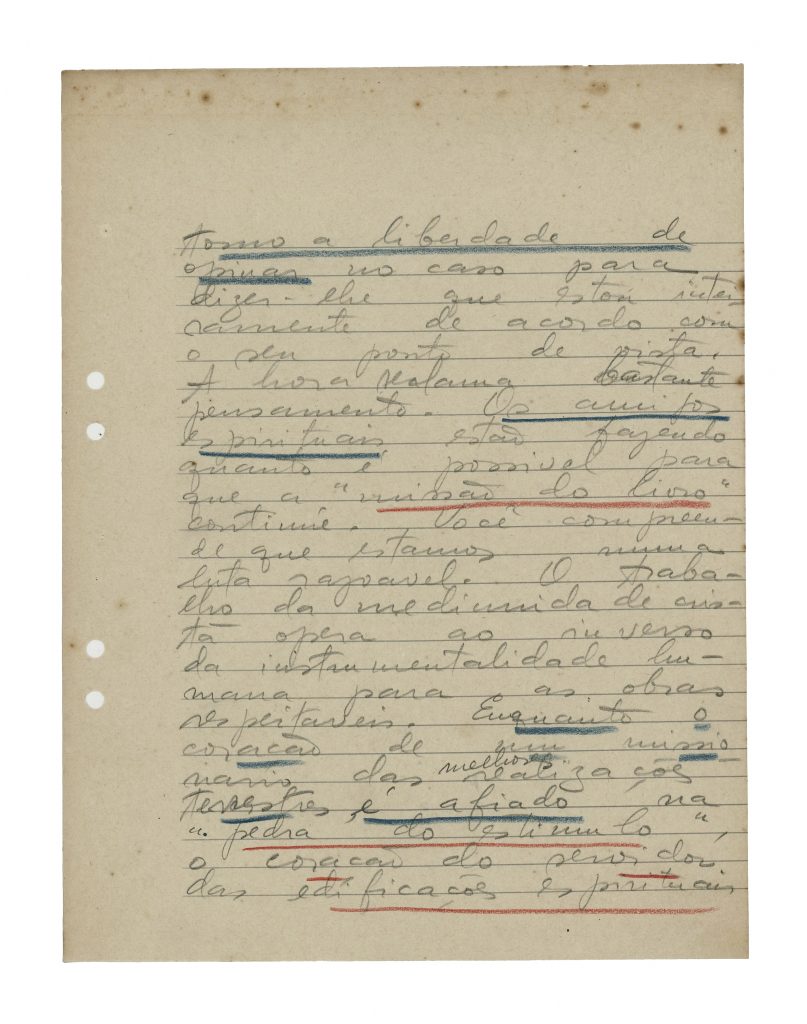 tomo a liberdade de
opinar no caso para
dizer-lhe que estou intei
ramente de acordo com
o seu ponto de vista.
A hora reclama bastante
pensamento. Os amigos
espirituais estão fazendo
quanto é possivel para
que a "missão do livro"
continúe. Você compreen-
de que estamos numa
luta razoavel. O traba-
lho da mediunidade cris-
tã opera ao inverso
da instrumentalidade hu-
mana para as obras
respeitaveis. Enquanto o
coração de um missio
nario das melhores realizações
terrestres é afiado na
"pedra do estimulo",
o coração do servidor
das edificações espirituais